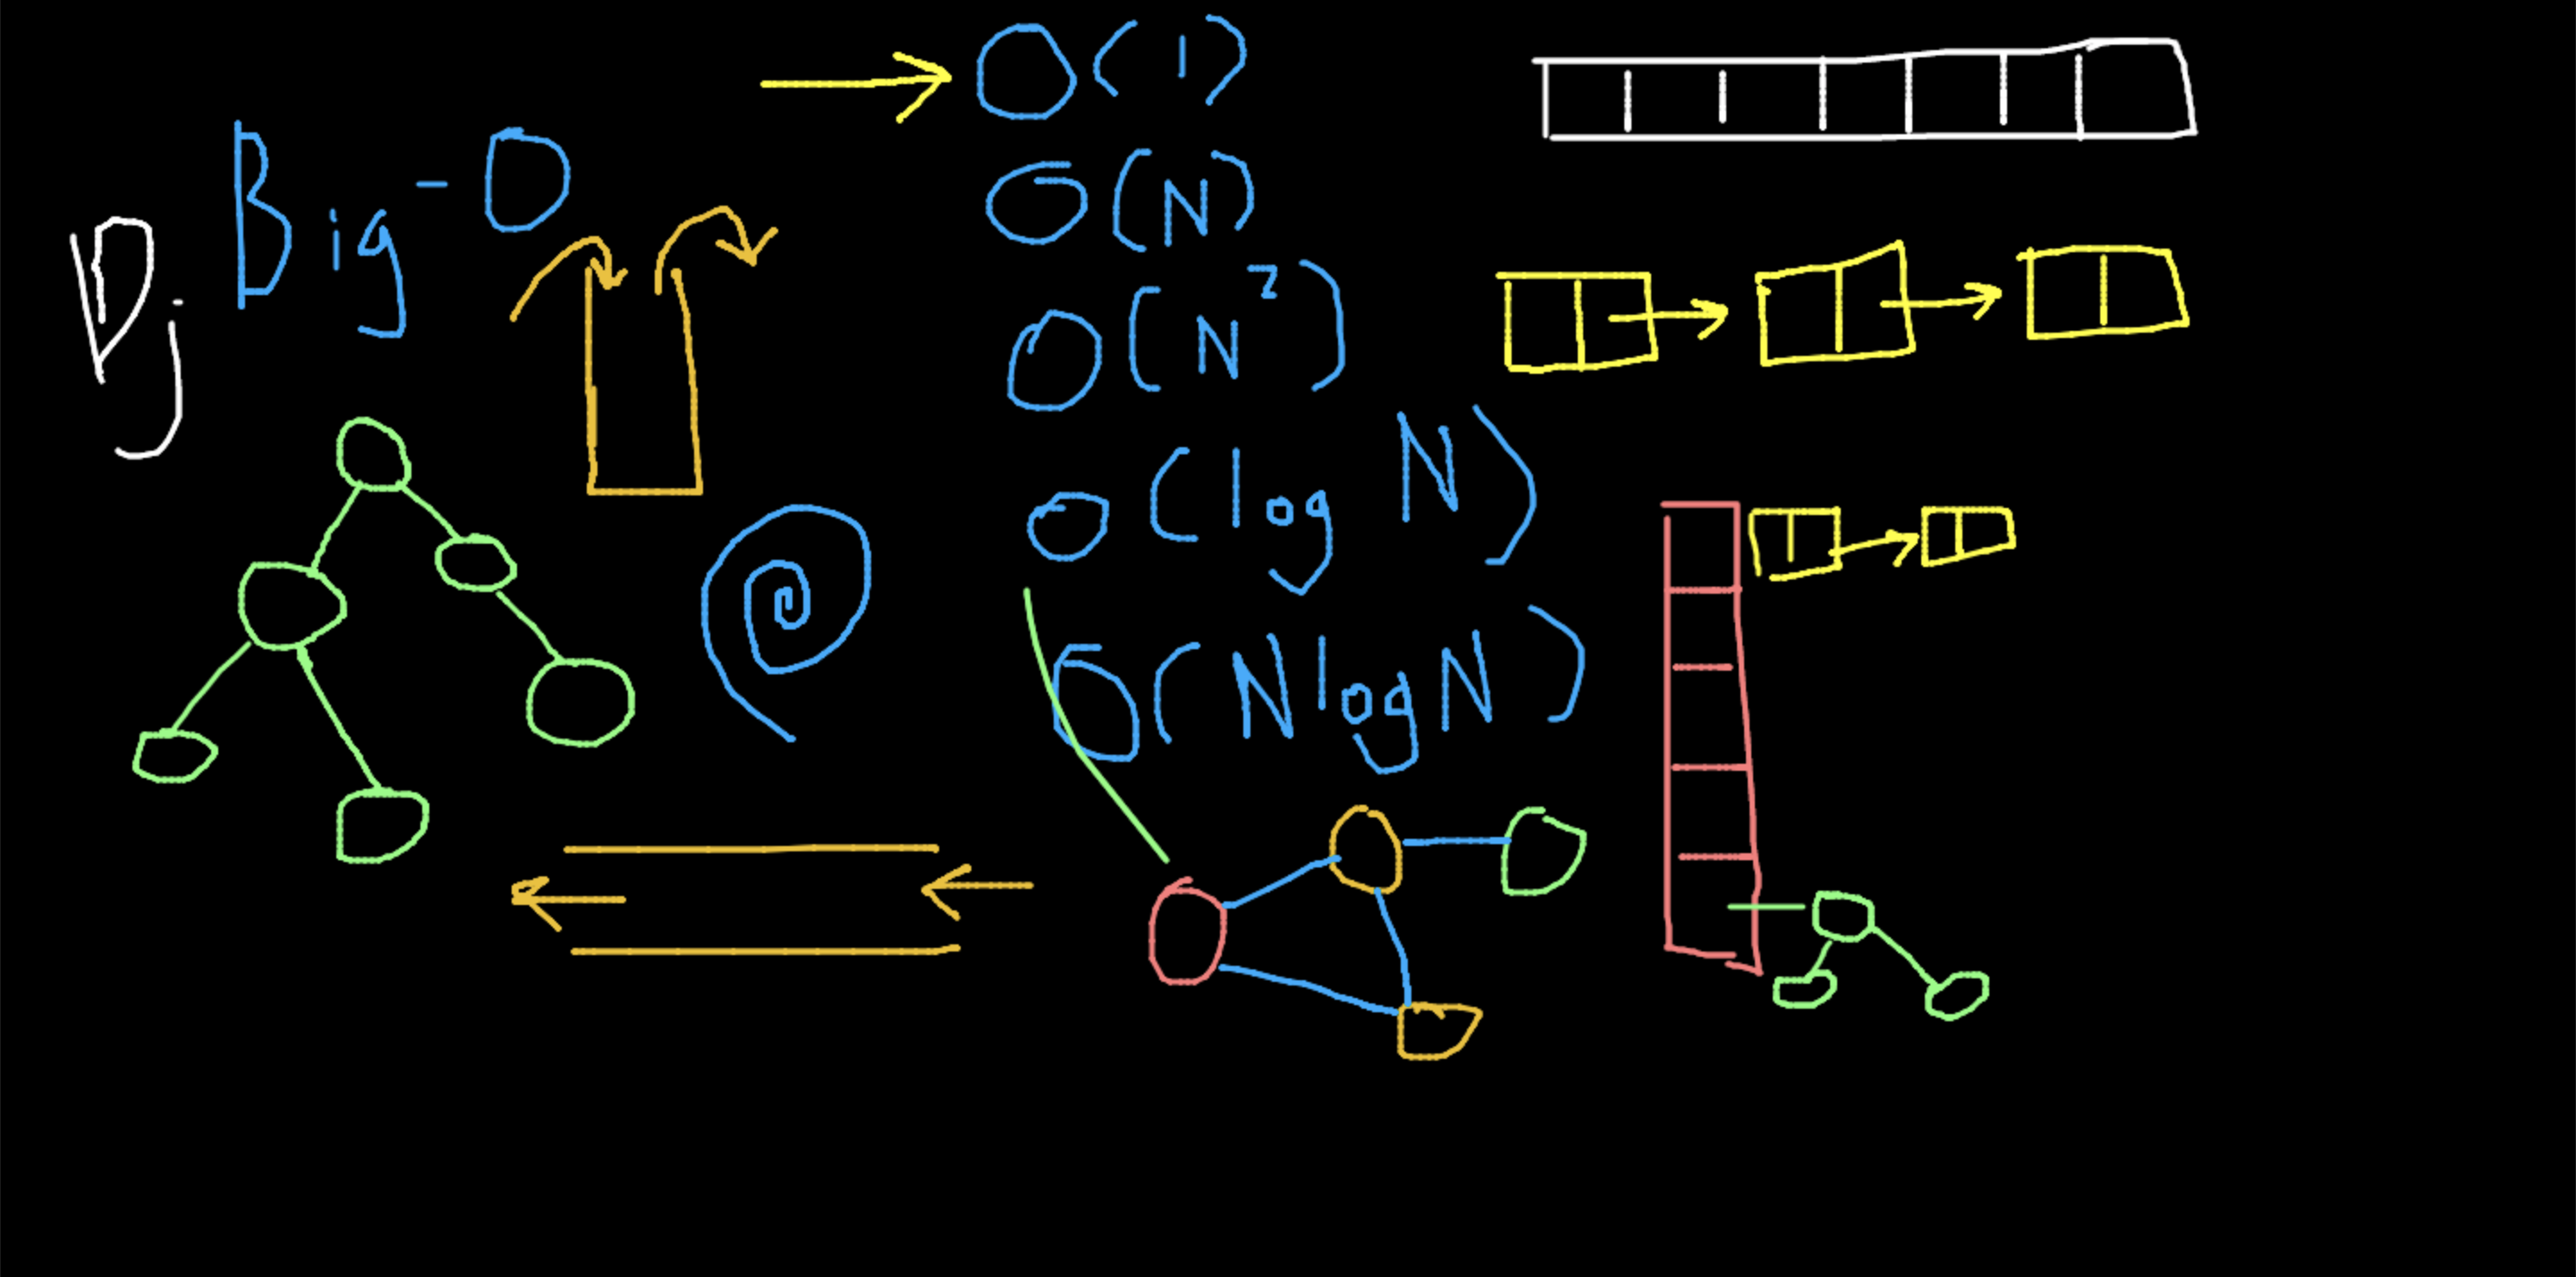 Big-O
Dj
O(1)
O(N)
O(N²)
O(log N)
O(NlogN)